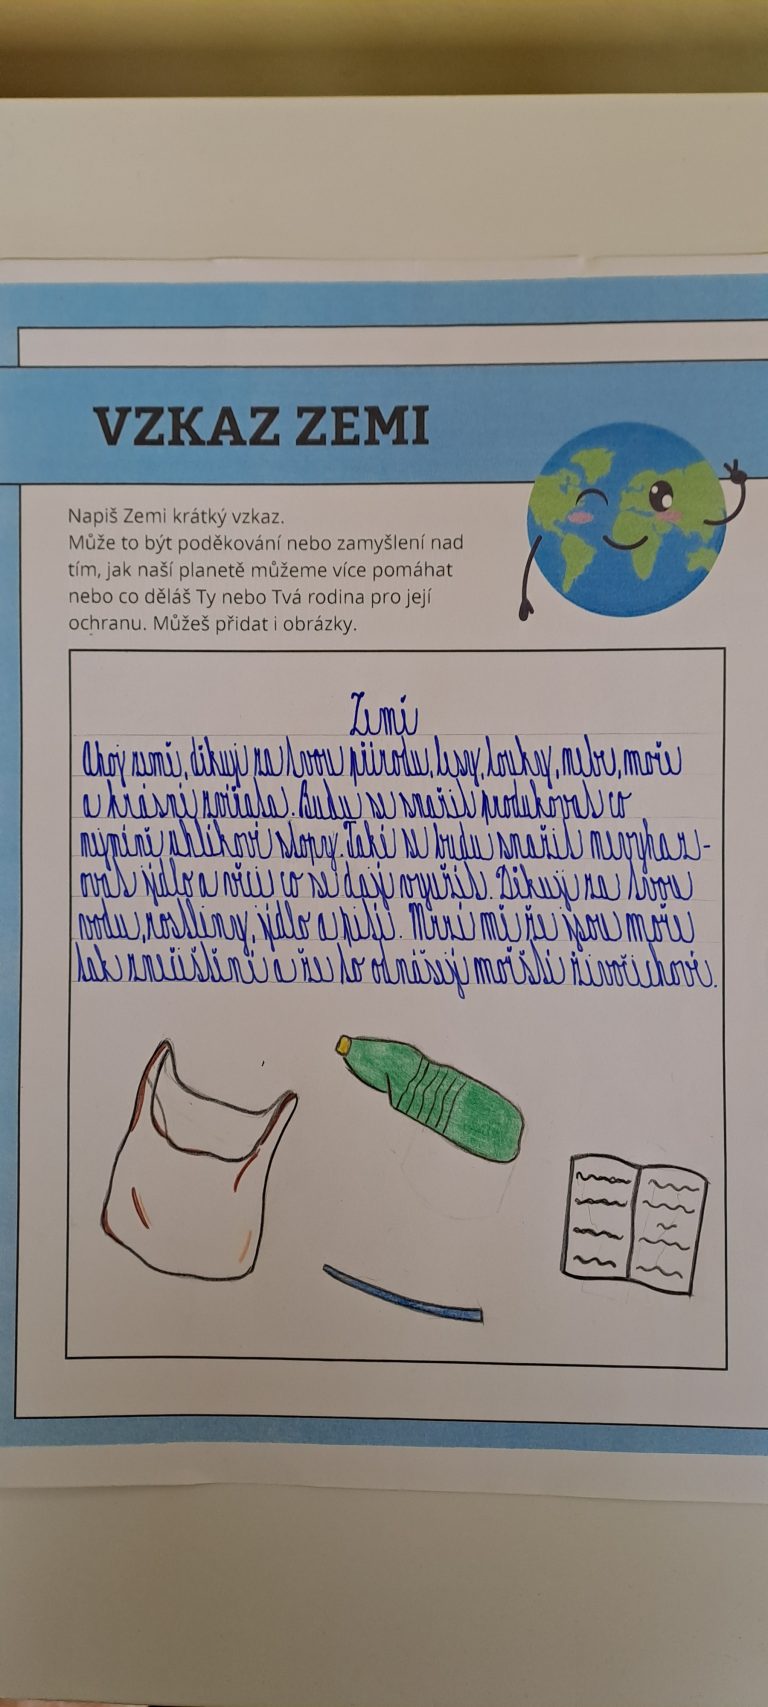 VZKAZ ZEMI
Napiš Zemi krátký vzkaz.
Může to být poděkování nebo zamyšlení nad
tím, jak naší planetě můžeme více pomáhat
nebo co děláš Ty nebo Tvá rodina pro její
ochranu. Můžeš přidat i obrázky.
Zemi
Ahoj země, děkuji za tvou přírodu, lesy, louky, nebe, moře
a krásní zvířata. Budu se snažit produkovat co
nejméně uhlíkové stopy. Také se budu snažit nevyhaz-
ovat jídlo a věci co se dají využít. Děkuji za tvou
vodu, rostliny, jídlo a pití. Mrzí mě že jsou moře
tak znečištění a že to odnášejí mořští živočichové.